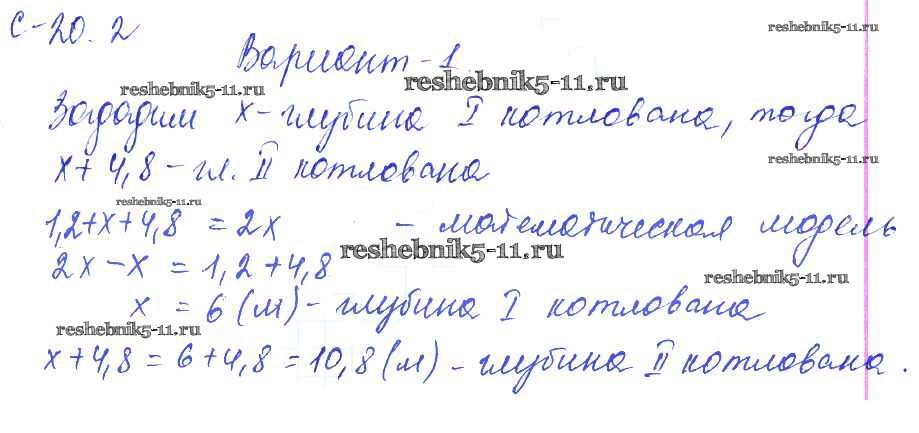 С-20.2
reshebnik5-11.ru
Вариант-1
reshebnik5-11.ru
reshebnik5-11.ru
Зададим x - глубина I котлована, тогда
x + 4,8 - гл. II котлована
reshebnik5-11.ru
reshebnik5-11.ru
1,2+x+4,8 = 2x - математическая модель
reshebnik5-11.ru
2x - x = 1,2 + 4,8
reshebnik5-11.ru
x = 6 (м) - глубина I котлована
reshebnik5-11.ru
x + 4,8 = 6 + 4,8 = 10,8 (м) - глубина II котлована.